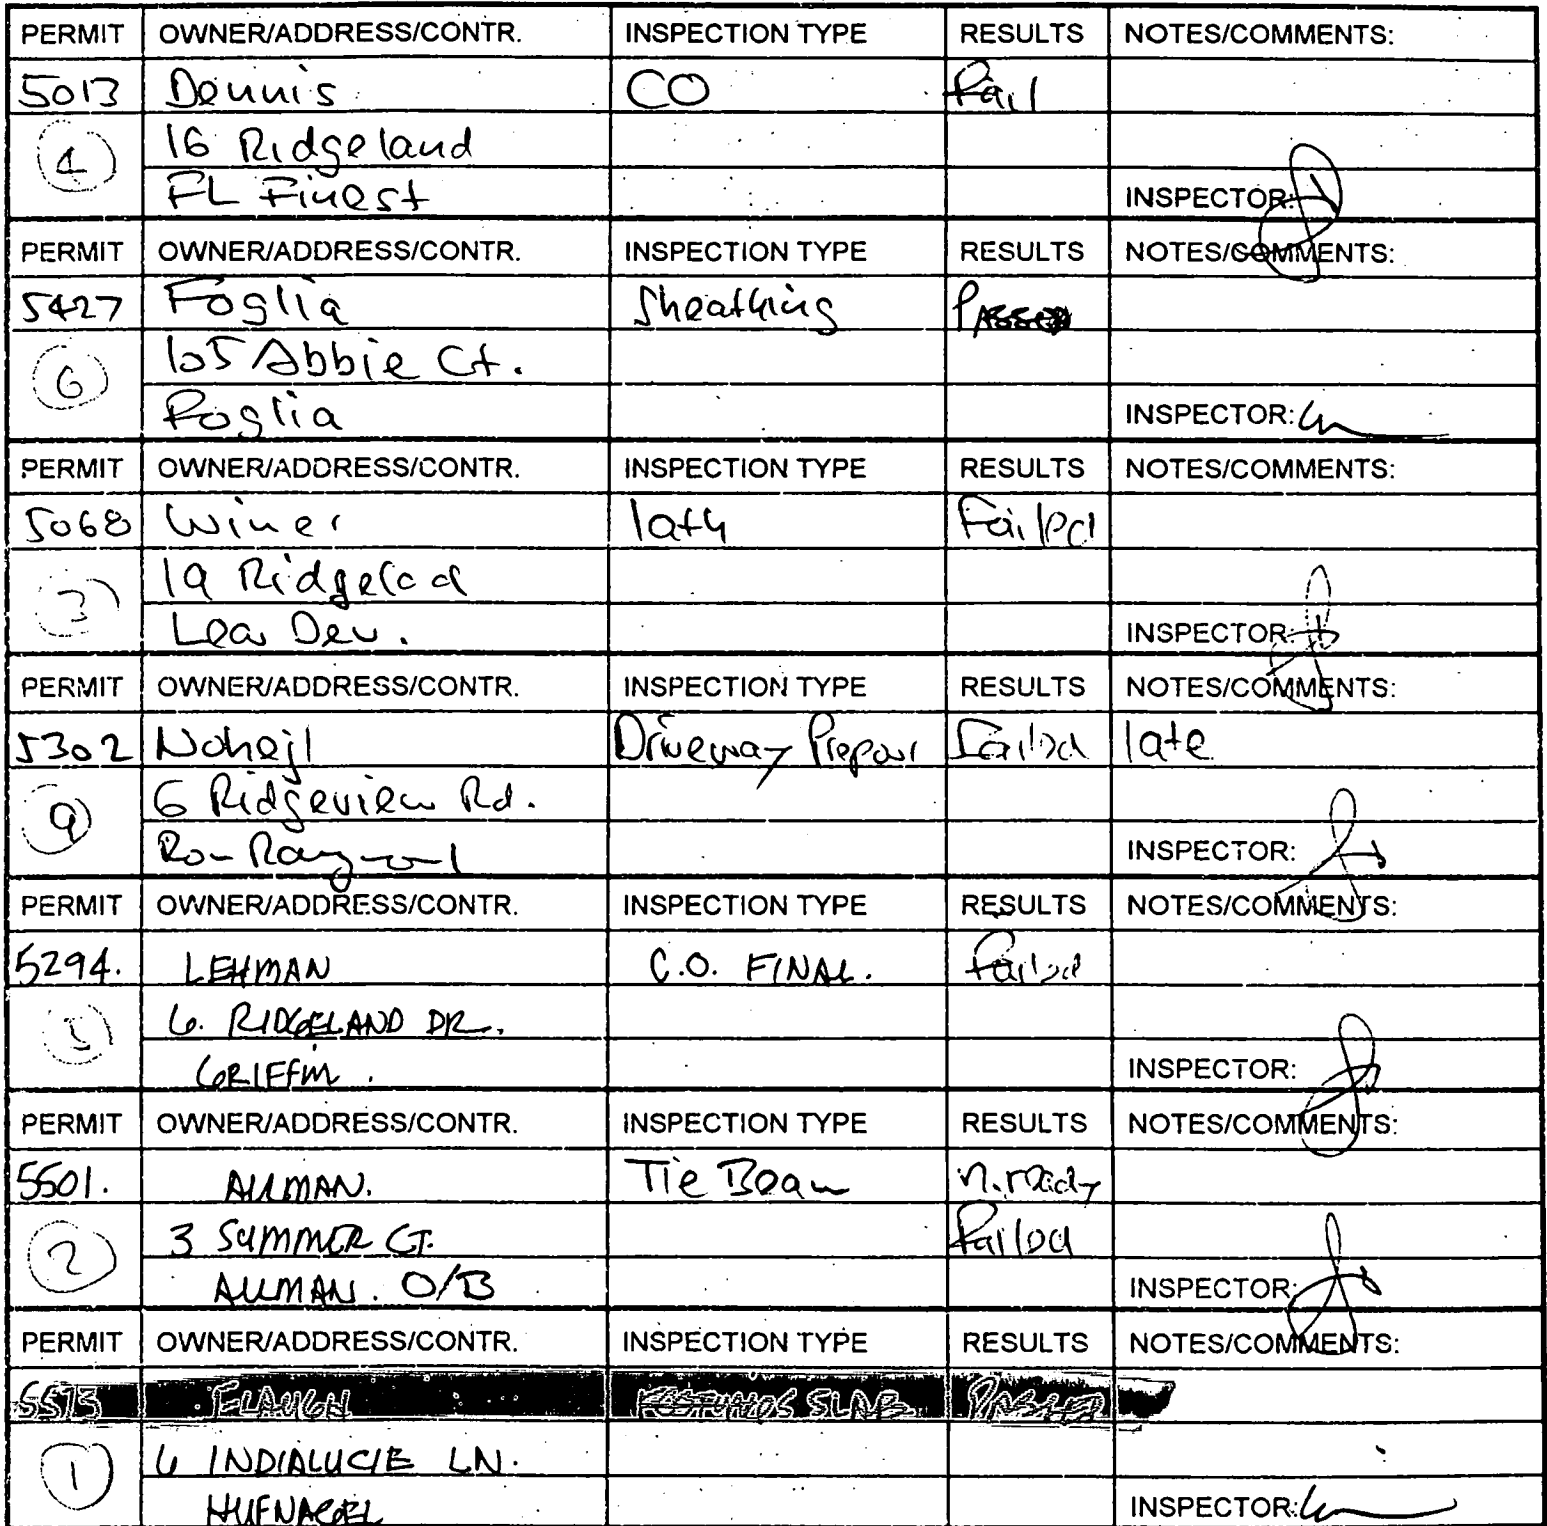 PERMIT OWNER/ADDRESS/CONTR. INSPECTION TYPE RESULTS NOTES/COMMENTS:
5013 Dennis CO Fail
4 16 Ridgeland
FL Finest INSPECTOR:
PERMIT OWNER/ADDRESS/CONTR. INSPECTION TYPE RESULTS NOTES/COMMENTS:
5427 Foglia Sheathing PASSED
6 105 Abbie Ct.
Foglia INSPECTOR:
PERMIT OWNER/ADDRESS/CONTR. INSPECTION TYPE RESULTS NOTES/COMMENTS:
5068 Winer lath Failed
3 19
Lea Dev. INSPECTOR:
PERMIT OWNER/ADDRESS/CONTR. INSPECTION TYPE RESULTS NOTES/COMMENTS:
5302 Nohejl Driveway Failed late
9 6 Ridgeview Rd.
Ron Raymond INSPECTOR:
PERMIT OWNER/ADDRESS/CONTR. INSPECTION TYPE RESULTS NOTES/COMMENTS:
5294. LEHMAN C.O. FINAL. Failed
6. RIDGELAND DR.
GRIFFIN. INSPECTOR:
PERMIT OWNER/ADDRESS/CONTR. INSPECTION TYPE RESULTS NOTES/COMMENTS:
5501. ALLMAN. Tie Beam n. ready
2 3 SUMMER CT. Failed
ALLMAN. O/B INSPECTOR:
PERMIT OWNER/ADDRESS/CONTR. INSPECTION TYPE RESULTS NOTES/COMMENTS:
5513 FLAUGH SLAB PASSED
1 6 INDIALUCIE LN.
HUFNAGEL INSPECTOR: